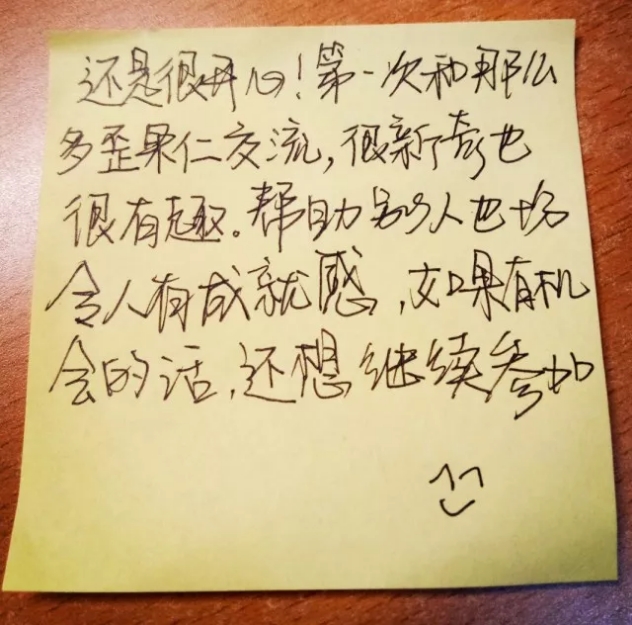 还是很开心！第一次和那么
多歪果仁交流，很新奇也
很有趣。帮助别人也
令人有成就感，如果有机
会的话，还想继续参加